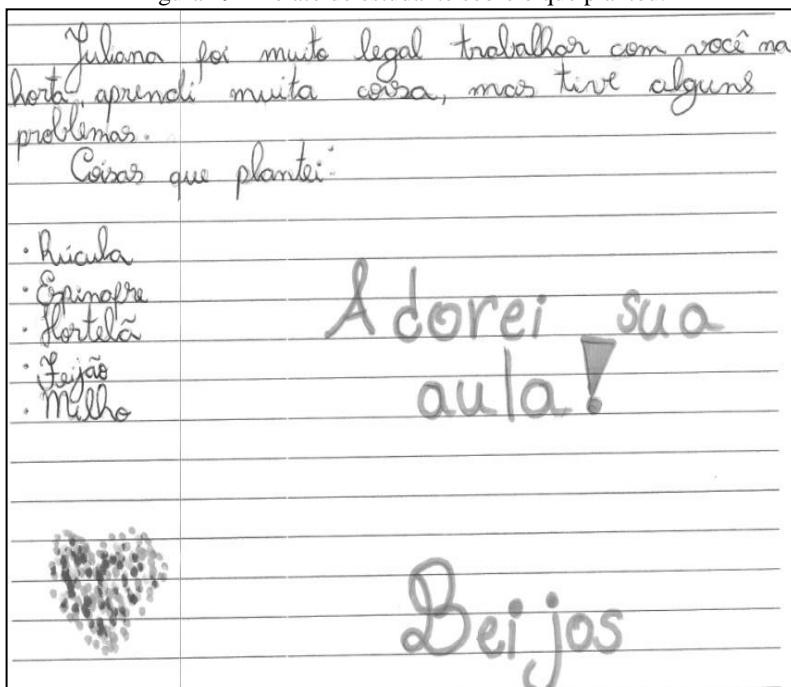 Juliana foi muito legal trabalhar com você na
horta, aprendi muita coisa, mas tive alguns
problemas.
Coisas que plantei:
· Rúcula
· Espinafre
· Hortelã
· Feijão
· Milho
Adorei sua
aula!
Beijos